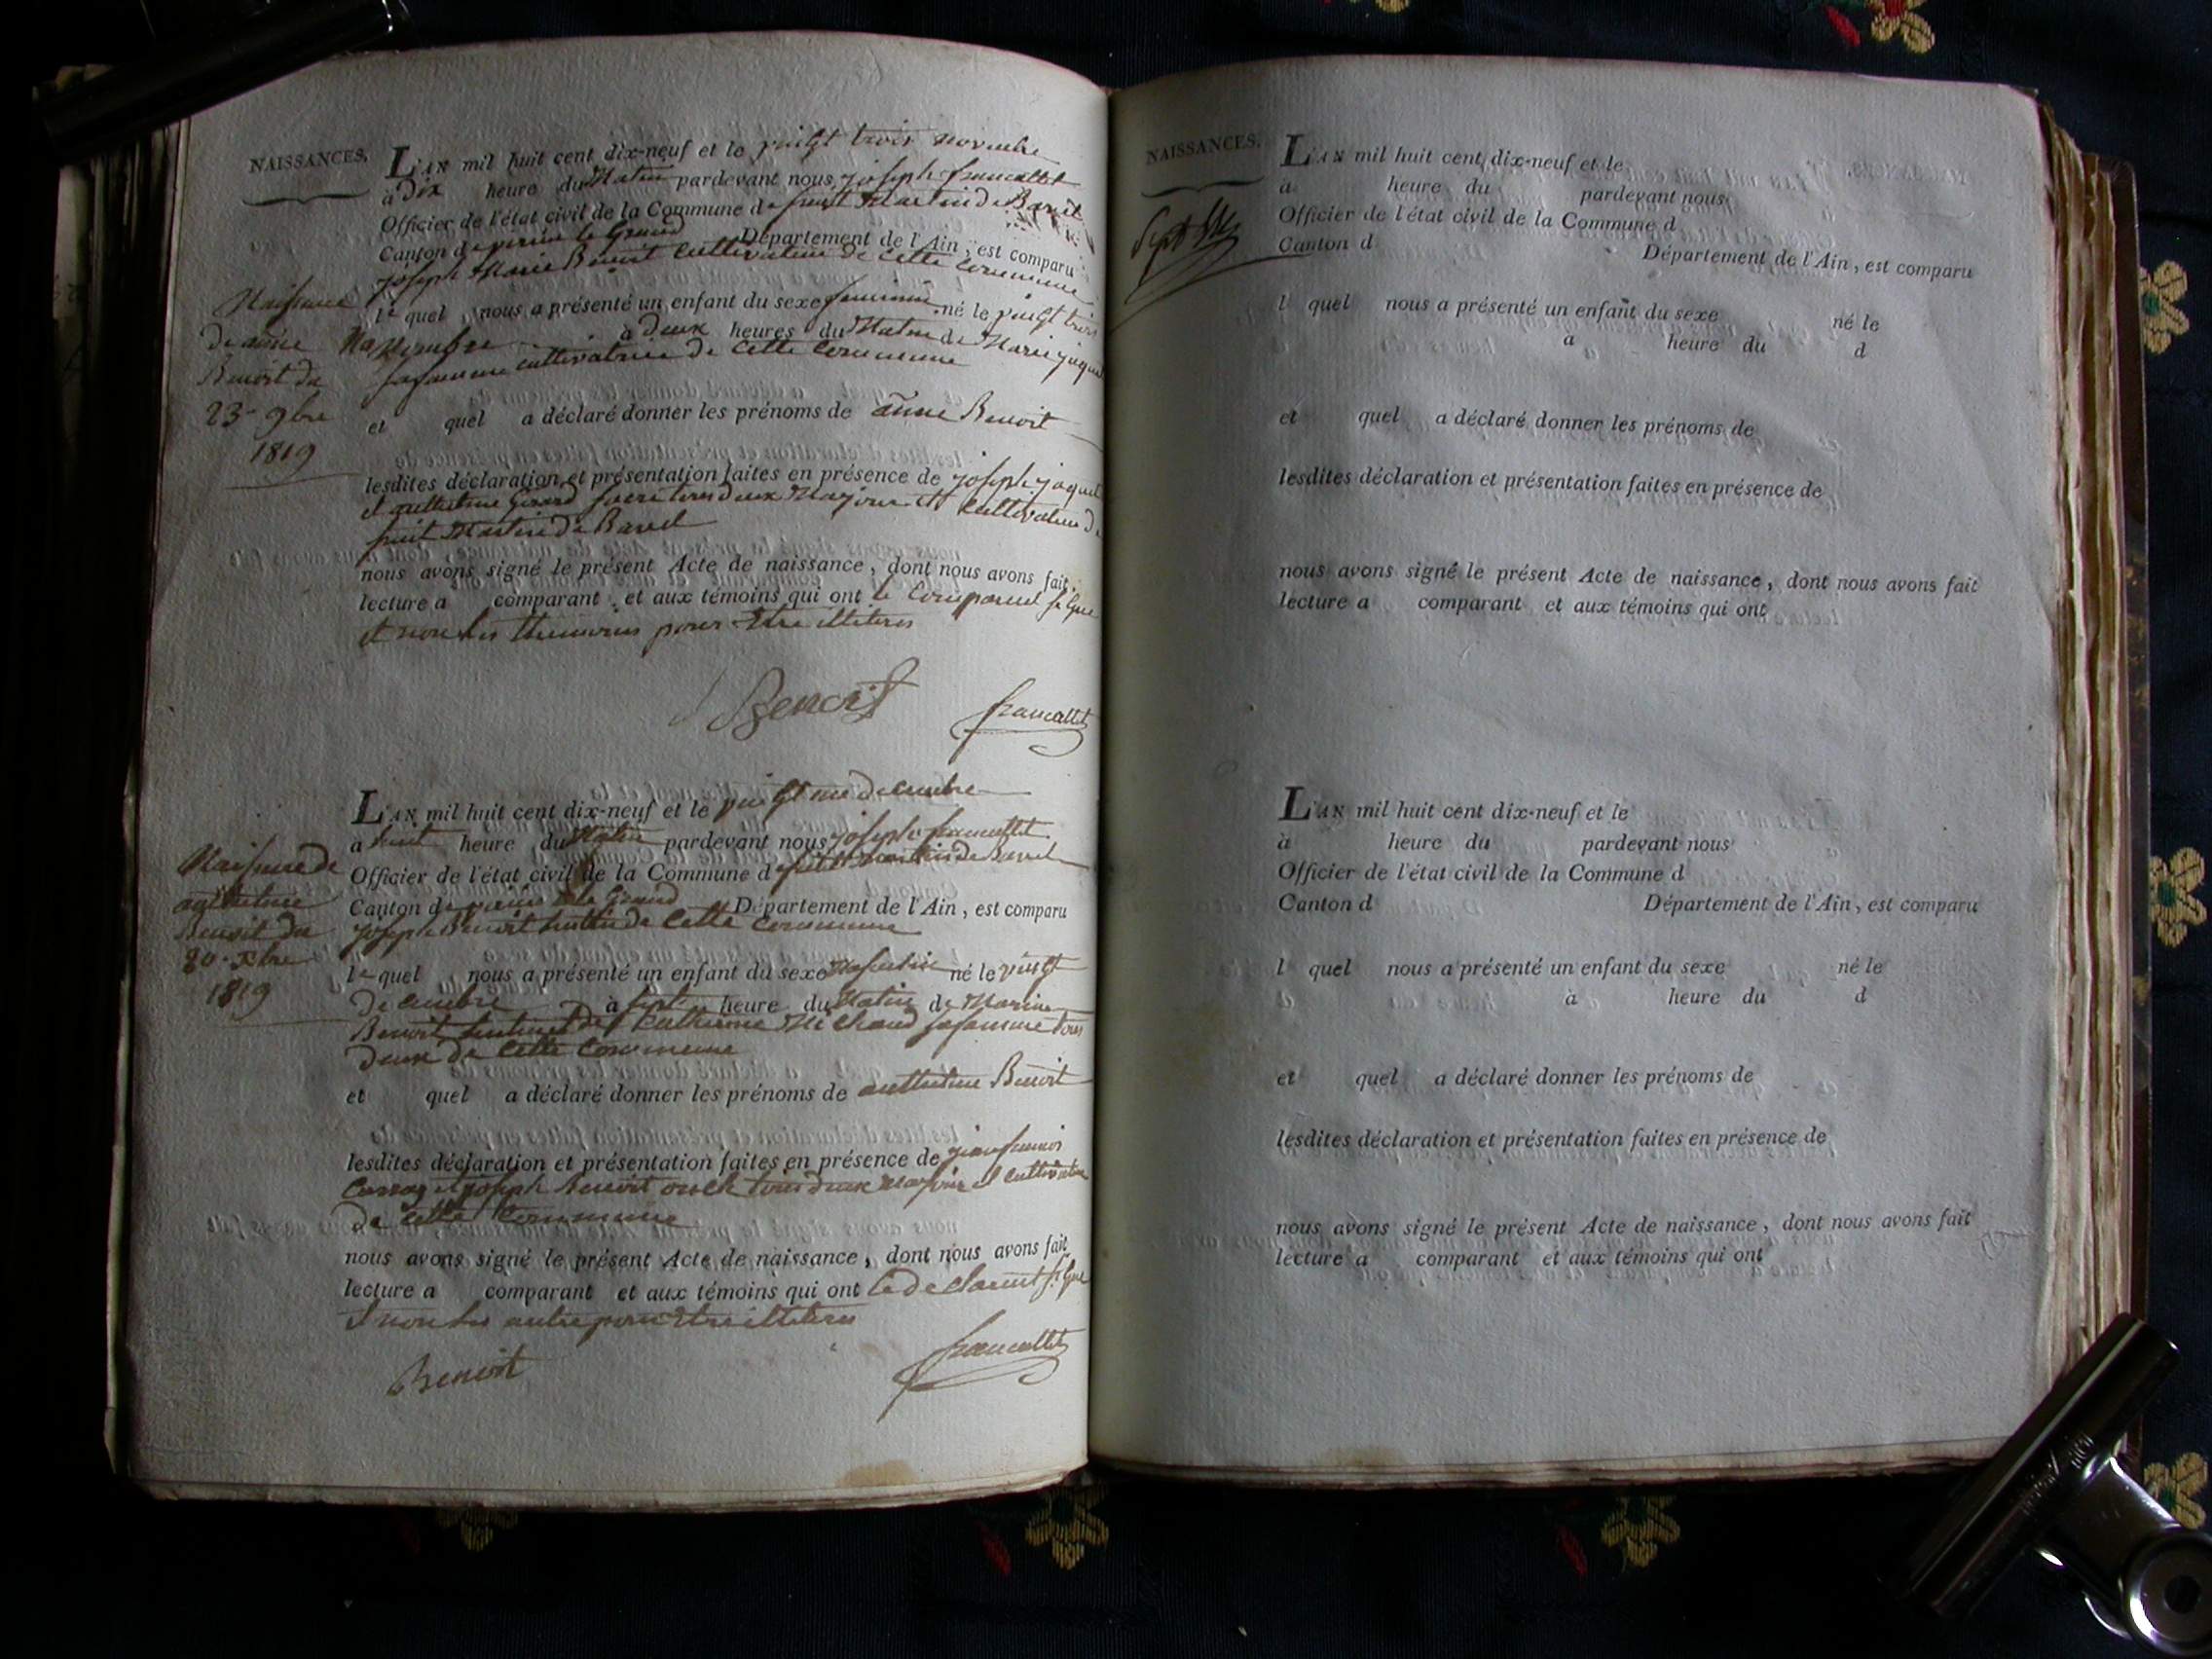 NAISSANCES.
L'AN mil huit cent dix-neuf et le vingt trois novembre
à Dix heure du Matin pardevant nous joseph francallet
Officier de l'état civil de la Commune de Saint Martin de Bavel
Canton de virieu le Grand Département de l'Ain, est comparu
joseph Marie Benoit cultivateur de cette commune
le quel nous a présenté un enfant du sexe feminin né le vingt trois
Novembre à deux heures du Matin de Marie jaquet
sa famme cultivatrice de cette commune
et quel a déclaré donner les prénoms de anne Benoit
lesdites déclaration et présentation faites en présence de joseph jaquet
et Girard tous deux Majour et cultivateur de
saint Martin de Bavel
nous avons signé le présent Acte de naissance, dont nous avons fait
lecture a comparant et aux témoins qui ont le comparent signe
et non les pour Etre illiteres
Benoit
francallet
Naissance
de anne
Benoit du
23 9bre
1819
L'AN mil huit cent dix-neuf et le vingt une decembre
a huit heure du Matin pardevant nous joseph francallet
Officier de l'état civil de la Commune de saint Martin de Bavel
Canton de virieu le Grand Département de l'Ain, est comparu
joseph Benoit de cette commune
le quel nous a présenté un enfant du sexe Masculin né le vingt
decembre à sept heure du Matin de
Benoit et de Catherine Michaud sa famme tous
deux de cette commune
et quel a déclaré donner les prénoms de Benoit
lesdites déclaration et présentation faites en présence de
et joseph Benoit tous deux Majour et cultivateur
de cette commune
nous avons signé le présent Acte de naissance, dont nous avons fait
lecture a comparant et aux témoins qui ont le declarent signe
et non les autre pour Etre illiteres
Benoit
francallet
Naissance de
Benoit du
20 xbre
1819
NAISSANCES.
L'AN mil huit cent dix-neuf et le
à heure du pardevant nous
Officier de l'état civil de la Commune d
Canton d Département de l'Ain, est comparu
l quel nous a présenté un enfant du sexe né le
à heure du d
et quel a déclaré donner les prénoms de
lesdites déclaration et présentation faites en présence de
nous avons signé le présent Acte de naissance, dont nous avons fait
lecture a comparant et aux témoins qui ont
L'AN mil huit cent dix-neuf et le
à heure du pardevant nous
Officier de l'état civil de la Commune d
Canton d Département de l'Ain, est comparu
l quel nous a présenté un enfant du sexe né le
à heure du d
et quel a déclaré donner les prénoms de
lesdites déclaration et présentation faites en présence de
nous avons signé le présent Acte de naissance, dont nous avons fait
lecture a comparant et aux témoins qui ont